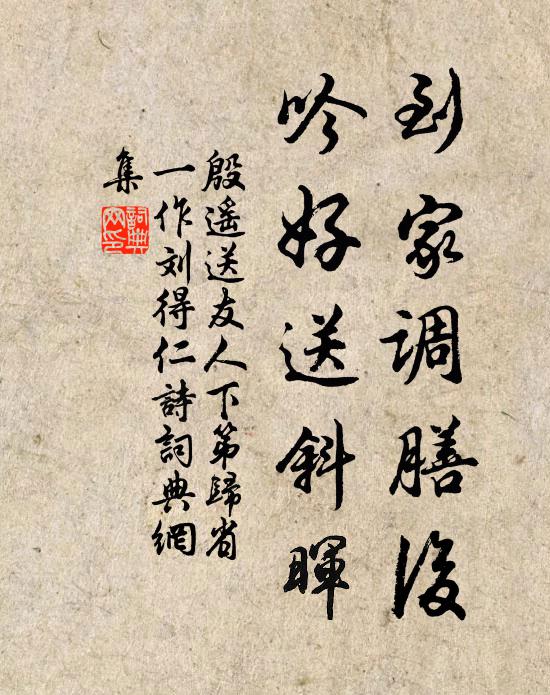 到家调膳後
吟好送斜暉
殷遥送友人下第歸省
一作刘得仁詩詞典網
集
詞典网印